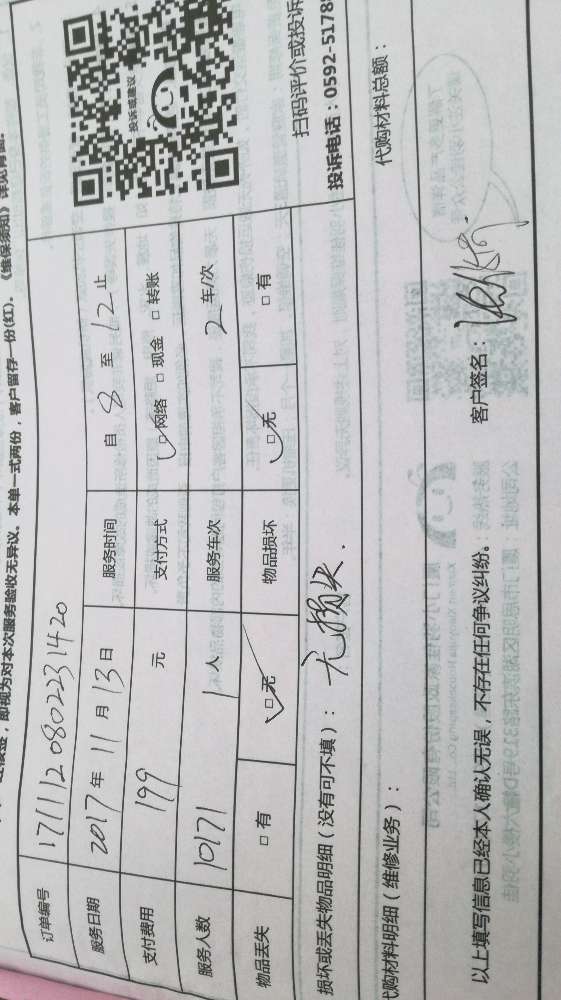 经核签，即视为对本次服务验收无异议。本单一式两份，客户留存一份(红)。《维保须知》详见背面。
订单编号 171112080223 1420
服务日期 2017年11月13日 服务时间 自 8 至 12 止
支付费用 199 元 支付方式 □网络 □现金 □转账
服务人数 10171 1人 服务车次 2 车/次
物品丢失 □有 □无 物品损坏 □无 □有
投诉或建议
扫码评价或投诉
投诉电话：0592-5178
损坏或丢失物品明细（没有可不填）： 无损失.
代购材料明细（维修业务）： 代购材料总额：
以上填写信息已经本人确认无误，不存在任何争议纠纷。 客户签名：